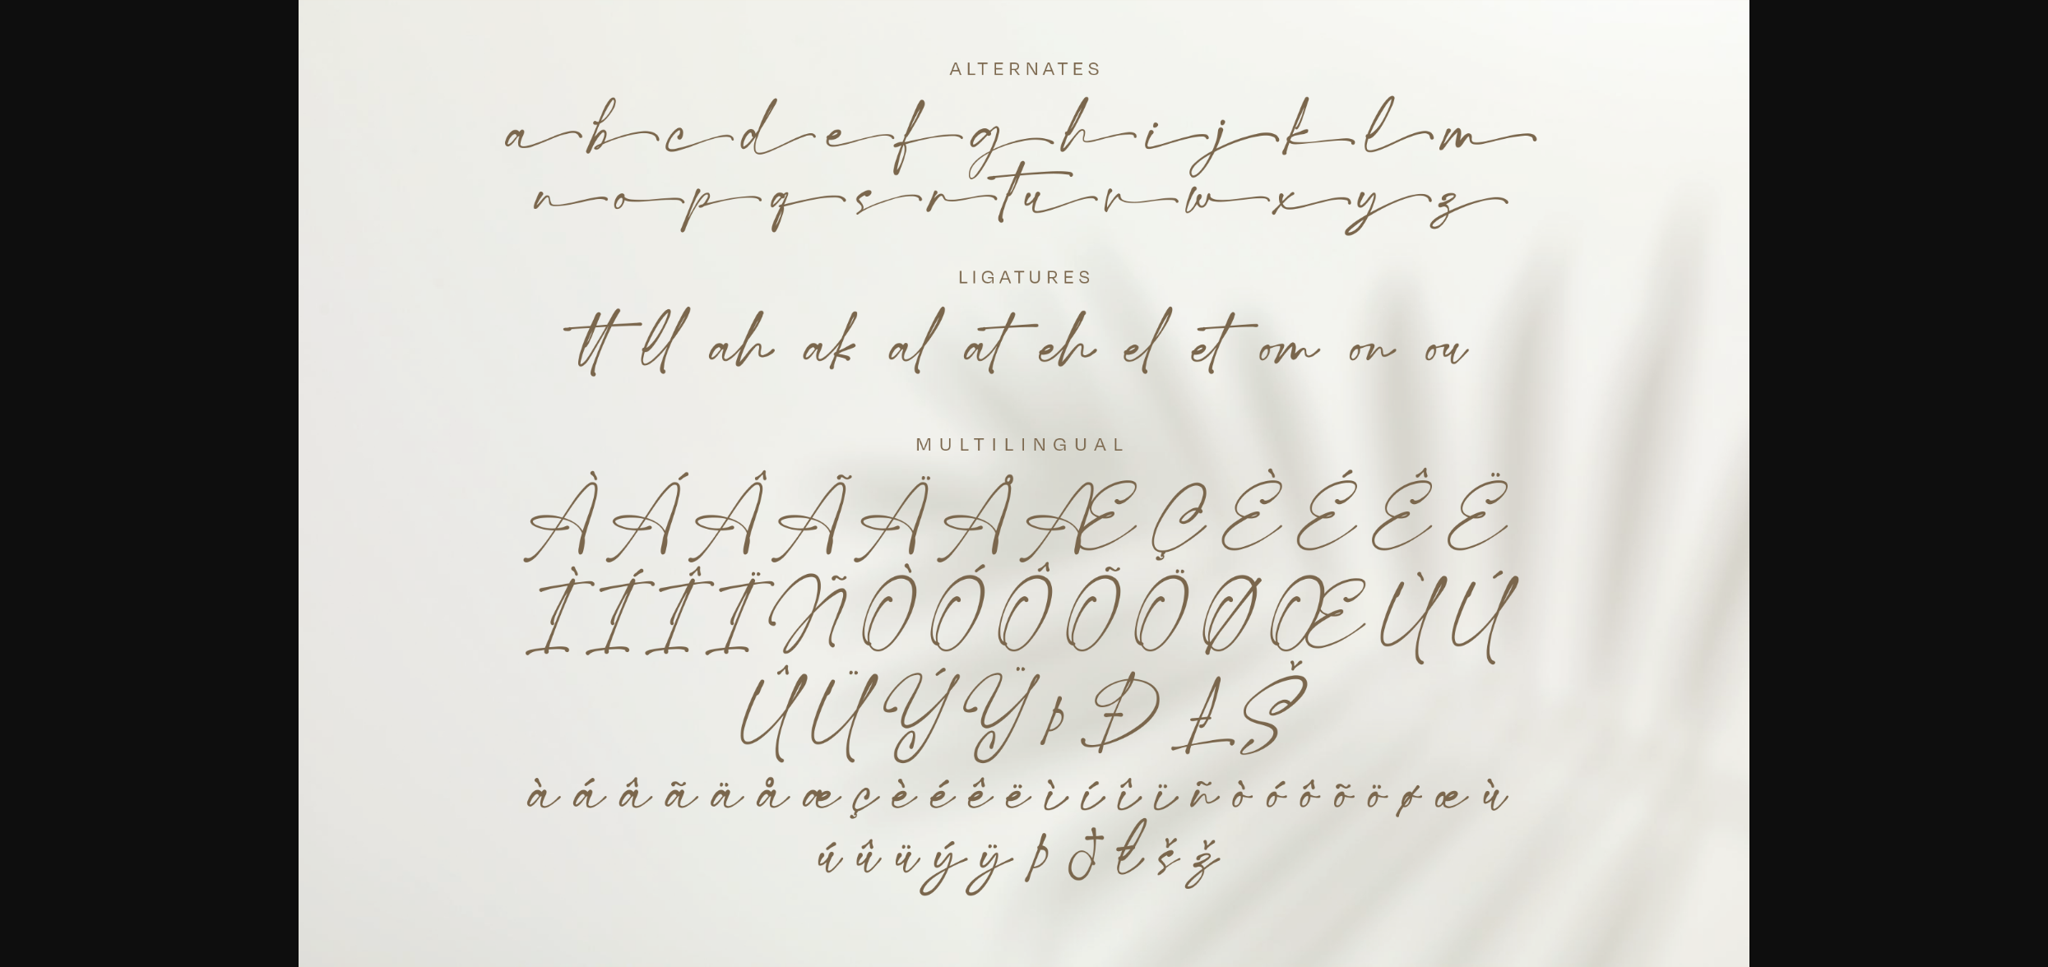 ALTERNATES
abcdefghijklm
nopqsrtuvwxyz
LIGATURES
tt ll ah ak al at eh el et om on ou
MULTILINGUAL
ÀÁÂÃÄÅÆÇÈÉÊË
ÌÍÎÏÑÒÓÔÕÖØŒÙÚ
ÛÜÝŸþĐŁŠ
àáâãäåæçèéêëìíîïñòóôõöøœù
úûüýÿþđłšž